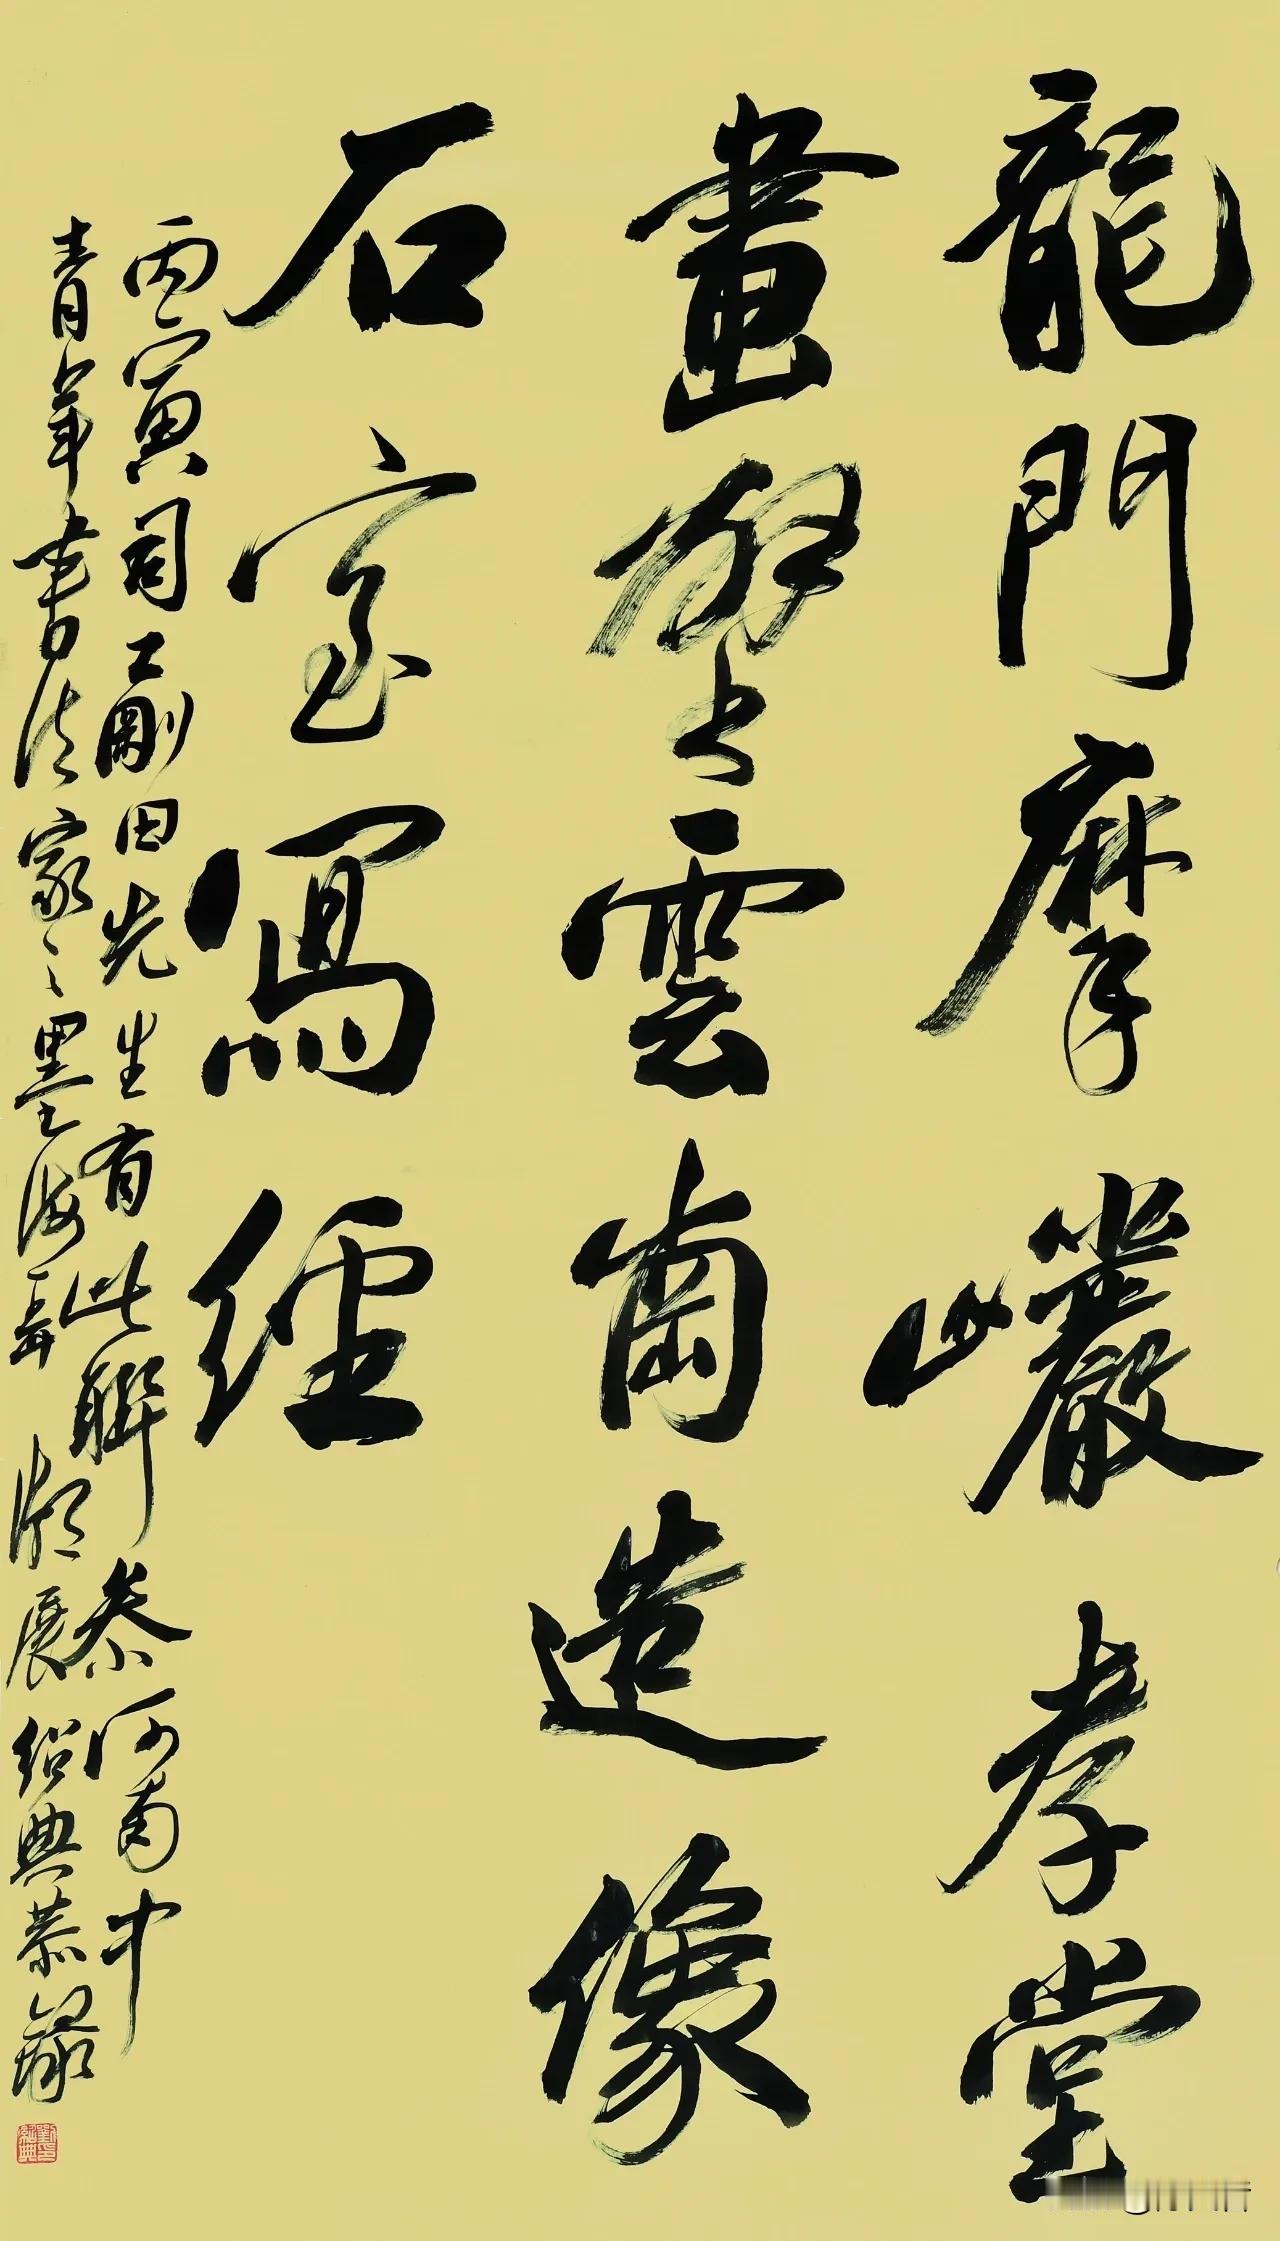 龍門摩巖孝堂
畫壁雲崗造像
石室寫經
丙寅司工剛田先生有此聯參河南中
青年書法家之墨海弄潮展紹典恭錄
劉紹典